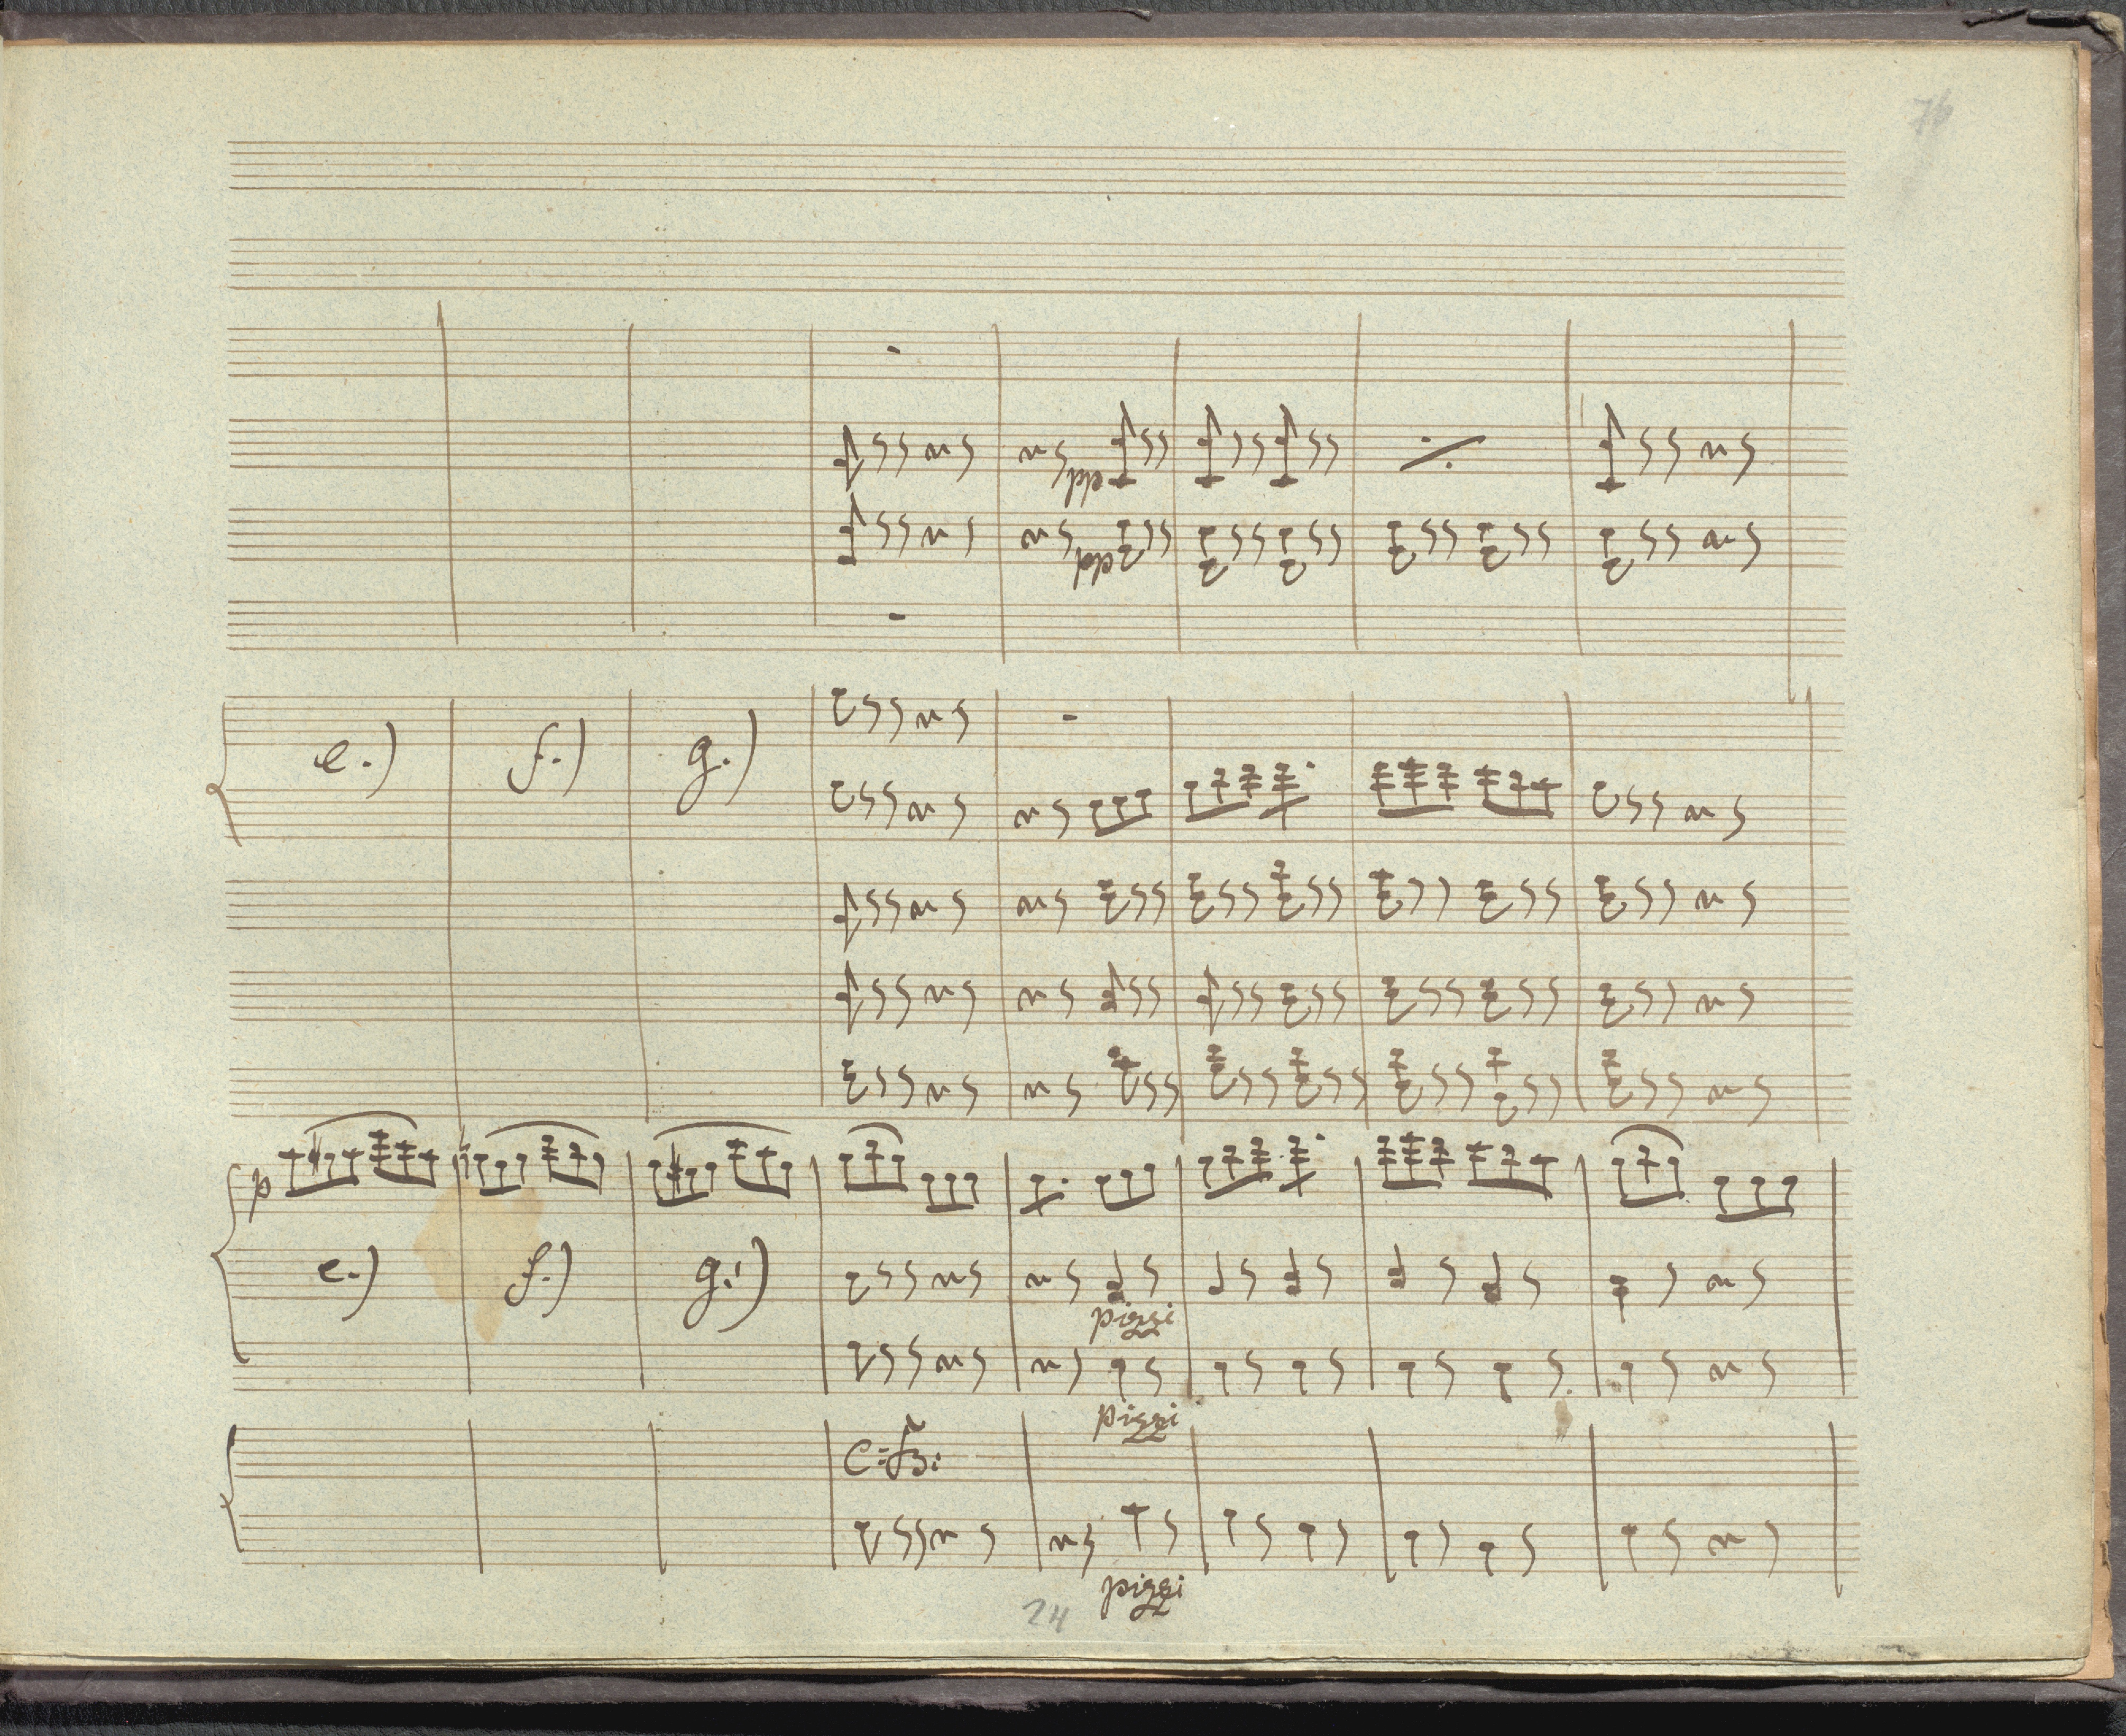 76
ppp
ppp
e.) f.) g.)
p
e.) f.) g.)
pizzi
pizzi
C: B:
pizzi
24